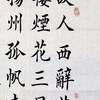 故人西辭
樓煙花三月
揚州孤帆